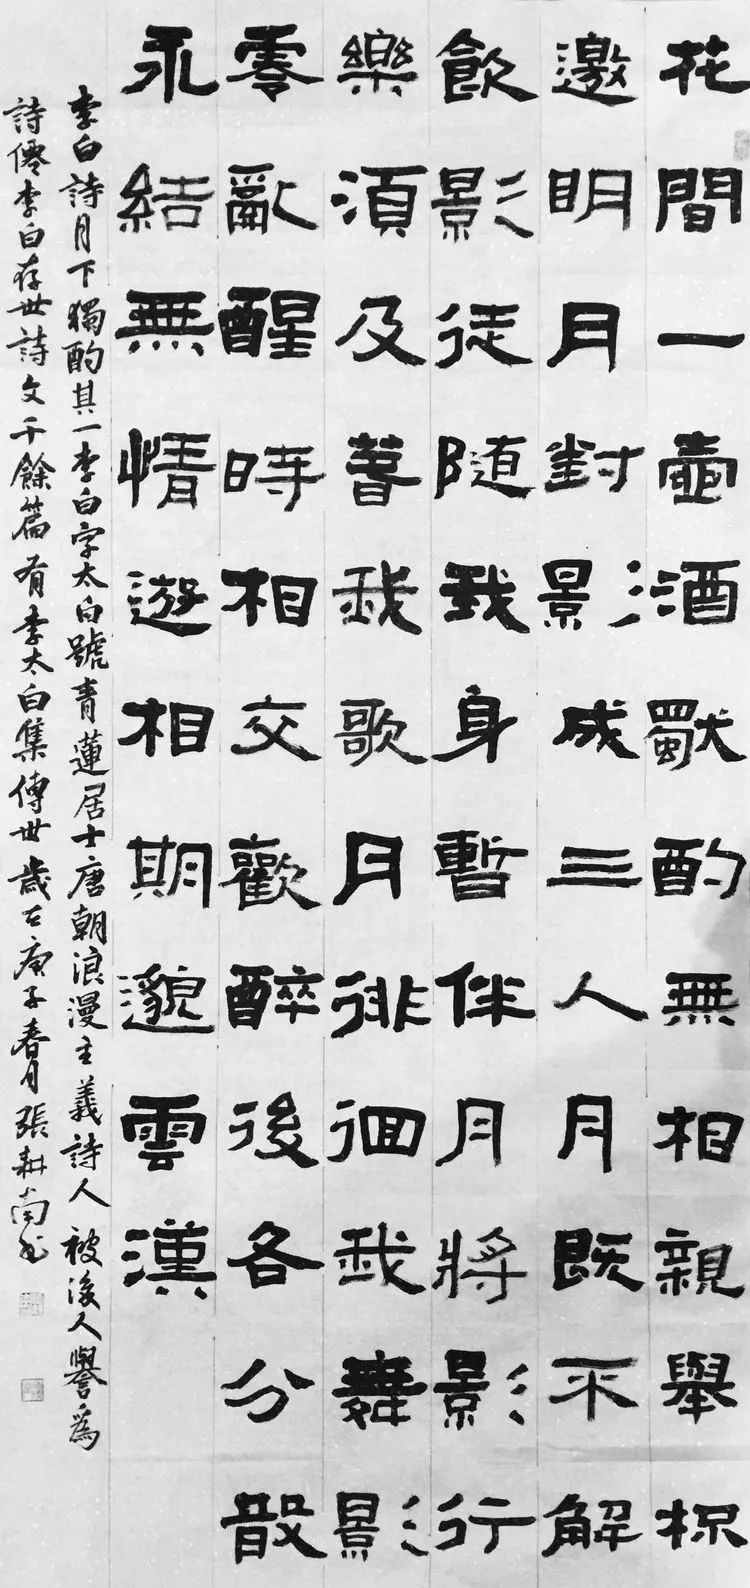 花間一壺酒獨酌無相親舉杯
邀明月對影成三人月既不解
飲影徒随我身暫伴月將影行
樂須及春我歌月徘徊我舞影
零亂醒時相交歡醉後各分散
永結無情遊相期邈雲漢
李白詩月下獨酌其一李白字太白號青蓮居士唐朝浪漫主義詩人被後人譽為
詩僊李白存世詩文千餘篇有李太白集傳世歲在庚子春月張耕南書